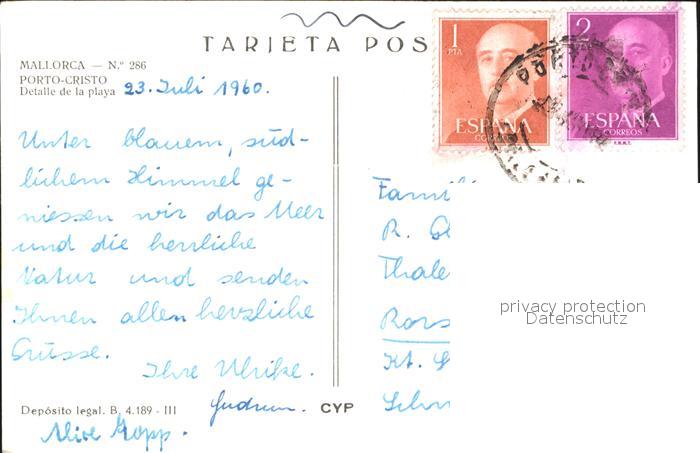 TARJETA POS
MALLORCA — N.º 286
PORTO-CRISTO
Detalle de la playa
23. Juli 1960.
1
PTA
ESPAÑA
CORREOS
2
ESPAÑA
CORREOS
F.N.M.T.
Unter blauem, süd-
lichem Himmel ge-
niessen wir das Meer
und die herrliche
Natur und senden
Ihnen allen herzliche
Grüsse.
Ihre Ulrike.
Gudrun.
Depósito legal. B. 4.189 - III
CYP
Famili
R.
Thale
Rors
Kt. S
Schw
privacy protection
Datenschutz